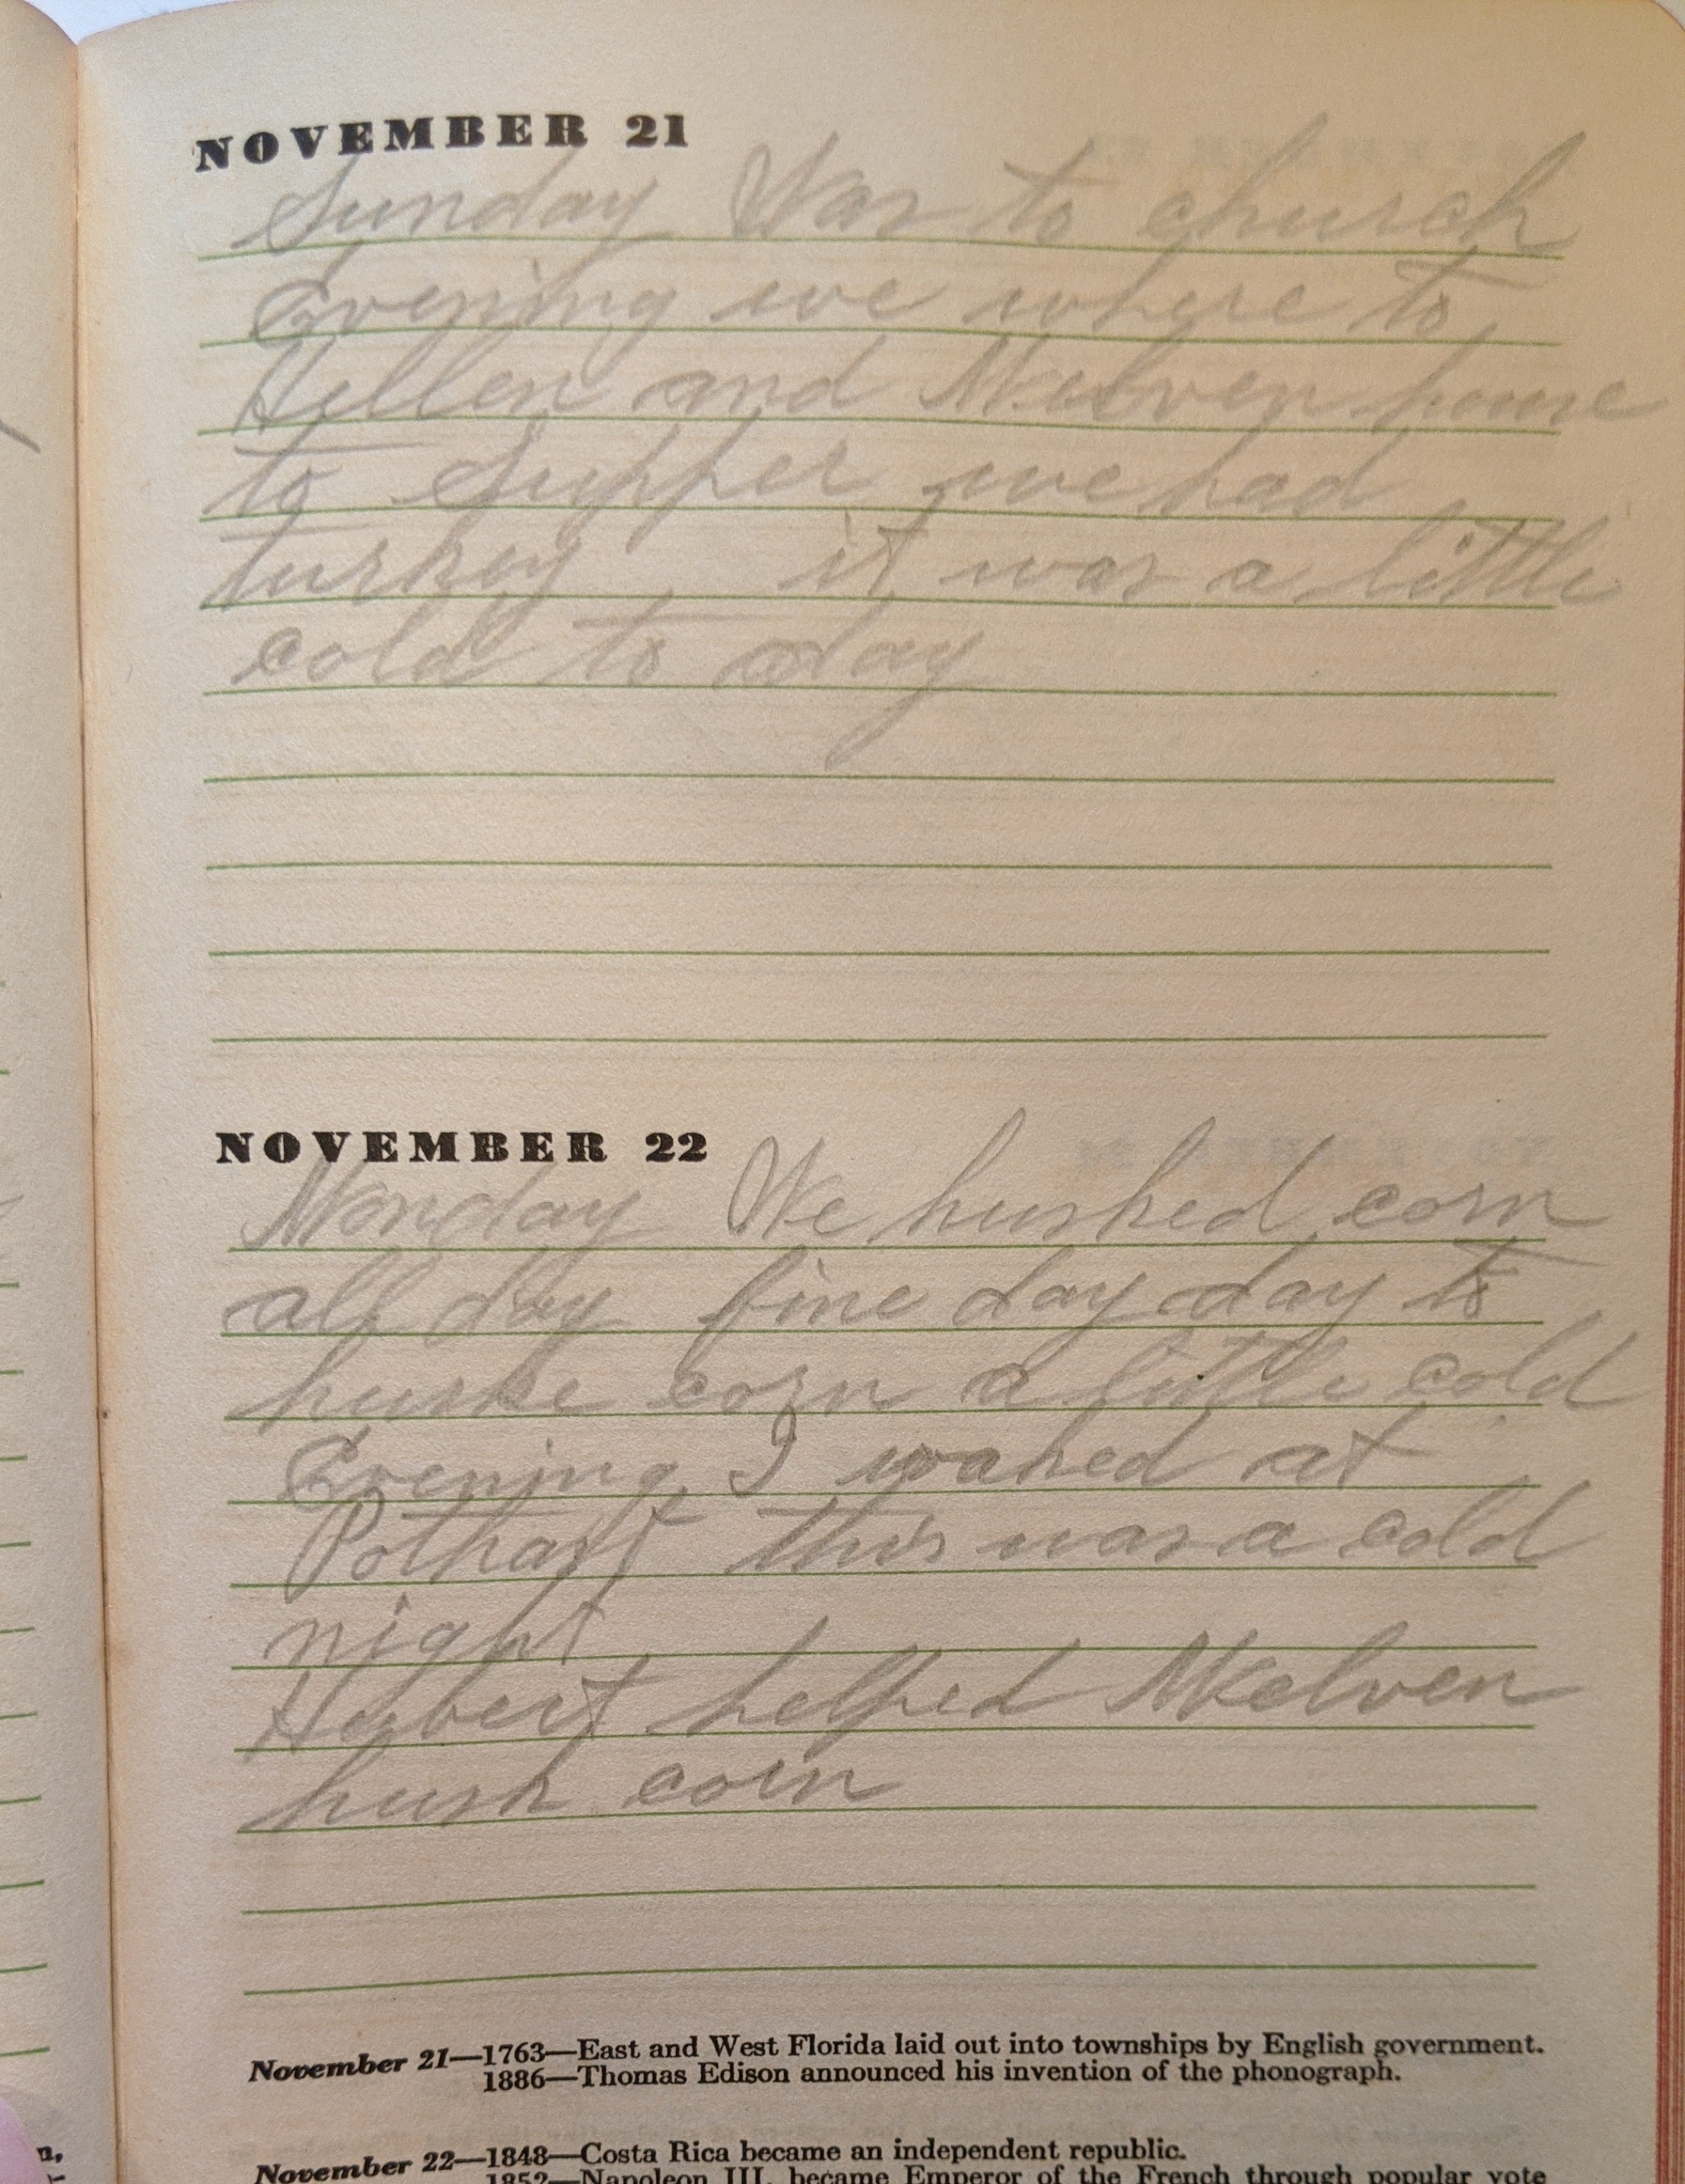 NOVEMBER 21
Sunday Was to church
Evening we where to
Hellen and Melven home
to Supper we had
turkey it was a little
cold to day
NOVEMBER 22
Monday We husked corn
all day fine day day to
huske corn a little cold
Evening I waked at
Pothast this was a cold
night
Hubert helped Melven
husk corn
November 21—1763—East and West Florida laid out into townships by English government.
1886—Thomas Edison announced his invention of the phonograph.
November 22—1848—Costa Rica became an independent republic.
1852—Napoleon III. became Emperor of the French through popular vote
n,